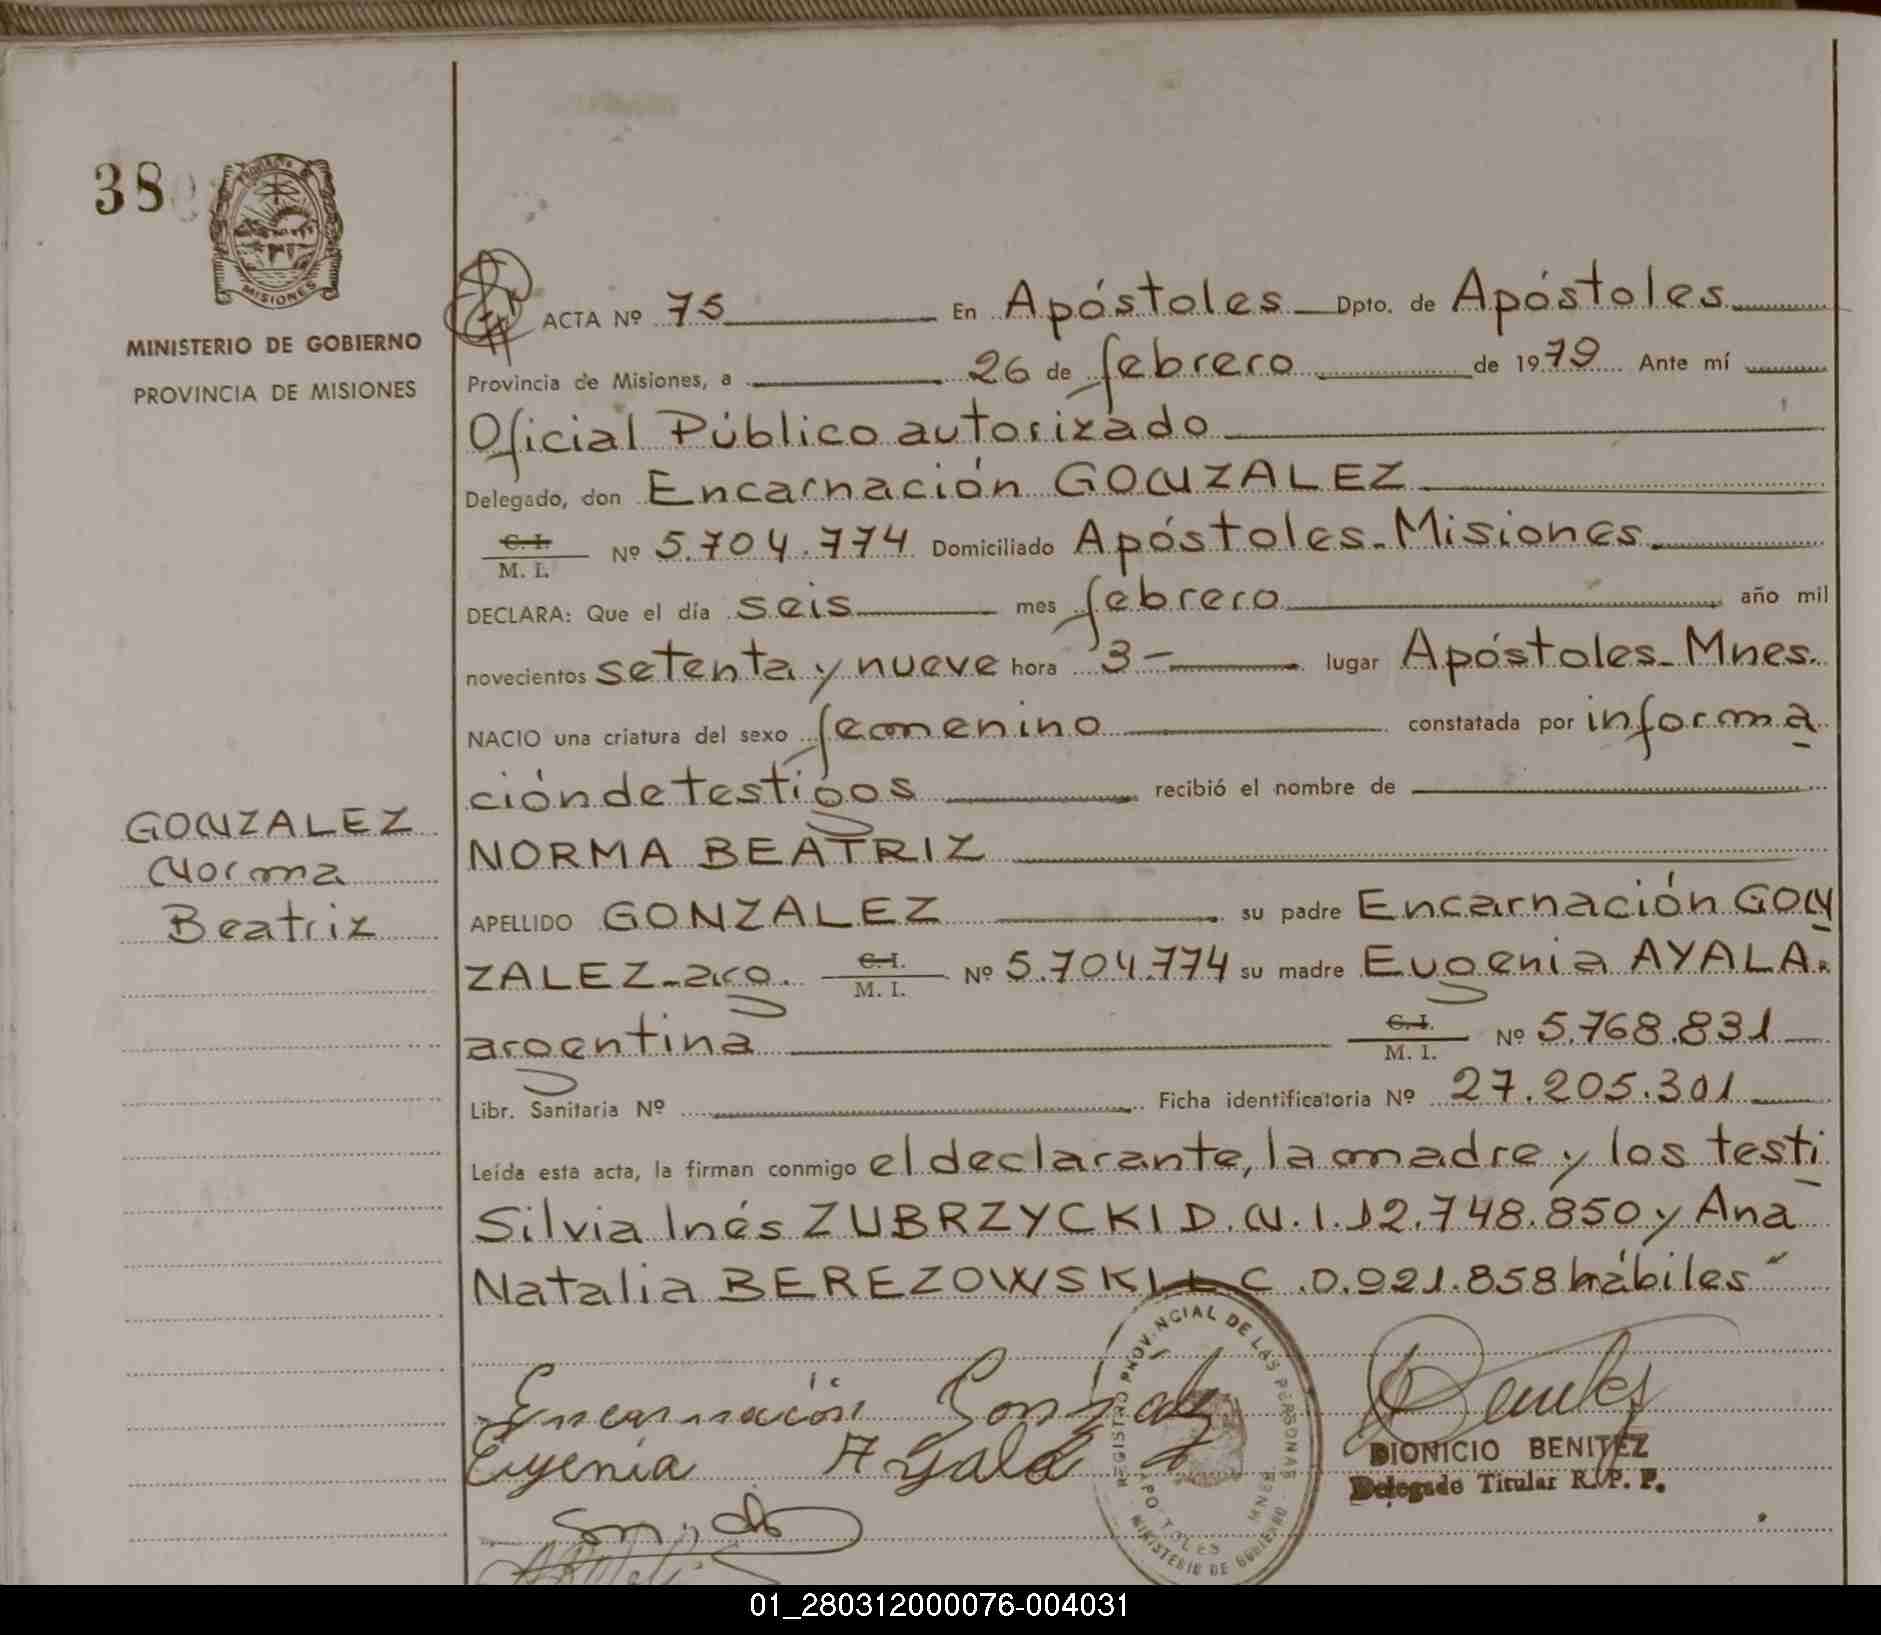 38
MISIONES
MINISTERIO DE GOBIERNO
PROVINCIA DE MISIONES
GONZALEZ
Norma
Beatriz
ACTA Nº 75 En Apóstoles Dpto. de Apóstoles
Provincia de Misiones, a 26 de febrero de 1979 Ante mí
Oficial Público autorizado
Delegado, don Encarnación GONZALEZ
C. I.
M. I. Nº 5.704.774 Domiciliado Apóstoles-Misiones.
DECLARA: Que el día seis mes febrero año mil
novecientos setenta y nueve hora 3- lugar Apóstoles-Mnes.
NACIO una criatura del sexo femenino constatada por informa
ción de testigos recibió el nombre de
NORMA BEATRIZ
APELLIDO GONZALEZ su padre Encarnación GON
ZALEZ-arg. C. I. M. I. Nº 5.704.774 su madre Eugenia AYALA.
argentina C. I. M. I. Nº 5.768.831
Libr. Sanitaria Nº Ficha identificatoria Nº 27.205.301
Leída esta acta, la firman conmigo el declarante, la madre y los testi
Silvia Inés ZUBRZYCKI D.N.I.12.748.850 y Ana
Natalia BEREZOWSKI L C .0.921.858 hábiles
Encarnación Gonzalez
Eugenia Ayala
REGISTRO PROVINCIAL DE LAS PERSONAS
APOSTOLES MNES
MINISTERIO DE GOBIERNO
Benitez
DIONICIO BENITEZ
Delegado Titular R. P. P.
01_280312000076-004031